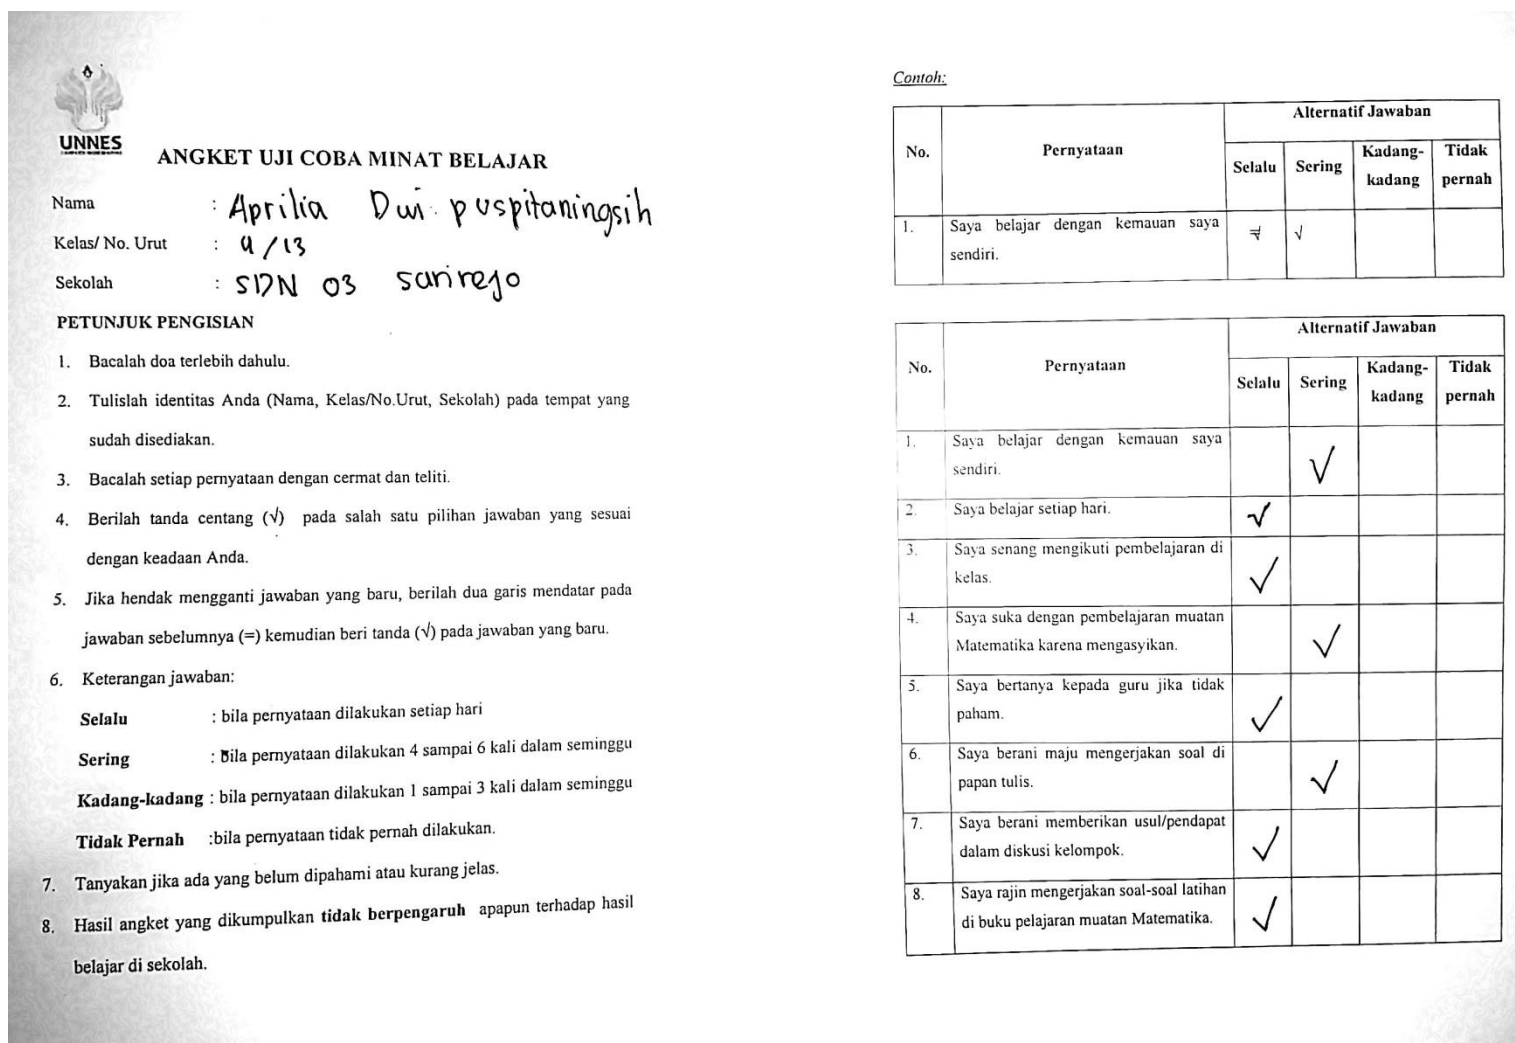 UNNES
ANGKET UJI COBA MINAT BELAJAR
Nama : Aprilia Dwi puspitaningsih
Kelas/ No. Urut : 4/13
Sekolah : SDN 03 sarirejo
PETUNJUK PENGISIAN
1. Bacalah doa terlebih dahulu.
2. Tulislah identitas Anda (Nama, Kelas/No.Urut, Sekolah) pada tempat yang
sudah disediakan.
3. Bacalah setiap pernyataan dengan cermat dan teliti.
4. Berilah tanda centang (√) pada salah satu pilihan jawaban yang sesuai
dengan keadaan Anda.
5. Jika hendak mengganti jawaban yang baru, berilah dua garis mendatar pada
jawaban sebelumnya (=) kemudian beri tanda (√) pada jawaban yang baru.
6. Keterangan jawaban:
Selalu : bila pernyataan dilakukan setiap hari
Sering : Bila pernyataan dilakukan 4 sampai 6 kali dalam seminggu
Kadang-kadang : bila pernyataan dilakukan 1 sampai 3 kali dalam seminggu
Tidak Pernah :bila pernyataan tidak pernah dilakukan.
7. Tanyakan jika ada yang belum dipahami atau kurang jelas.
8. Hasil angket yang dikumpulkan tidak berpengaruh apapun terhadap hasil
belajar di sekolah.
Contoh:
Alternatif Jawaban
No. Pernyataan
Selalu Sering Kadang-kadang Tidak pernah
1. Saya belajar dengan kemauan saya
sendiri. √ √
Alternatif Jawaban
No. Pernyataan
Selalu Sering Kadang-kadang Tidak pernah
1. Saya belajar dengan kemauan saya
sendiri. √
2. Saya belajar setiap hari. √
3. Saya senang mengikuti pembelajaran di
kelas. √
4. Saya suka dengan pembelajaran muatan
Matematika karena mengasyikan. √
5. Saya bertanya kepada guru jika tidak
paham. √
6. Saya berani maju mengerjakan soal di
papan tulis. √
7. Saya berani memberikan usul/pendapat
dalam diskusi kelompok. √
8. Saya rajin mengerjakan soal-soal latihan
di buku pelajaran muatan Matematika. √